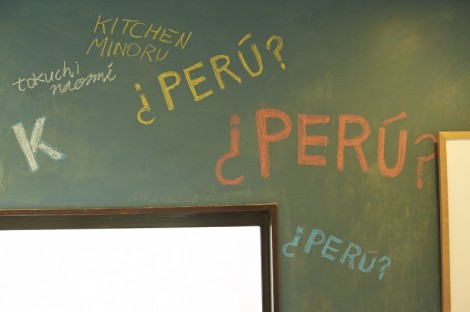 KITCHEN
MINORU
tokuchi
naomi
¿PERÚ?
K
¿PERÚ?
¿PERÚ?